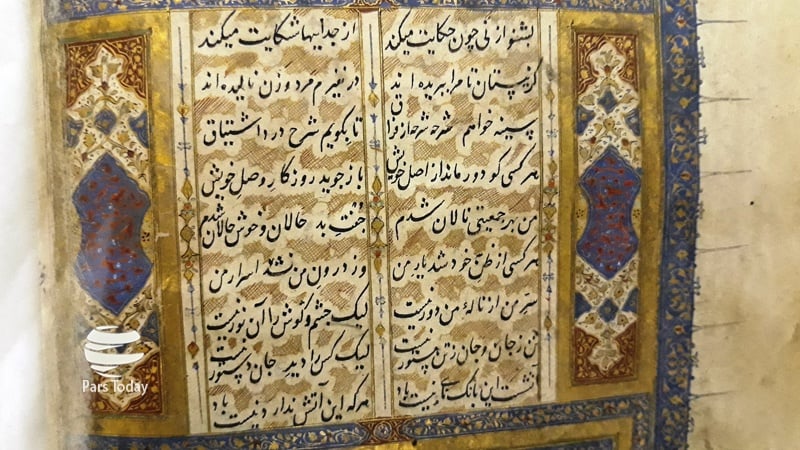 بشنو از نی چون حکایت میکند از جداییها شکایت میکند
کز نیستان تا مرا ببریده اند در نفیرم مرد و زن نالیده اند
سینه خواهم شرحه شرحه از فراق تا بگویم شرح درد اشتیاق
هر کسی کو دور ماند از اصل خویش باز جوید روزگار وصل خویش
من بهر جمعیتی نالان شدم جفت بد حالان و خوش حالان شدم
هر کسی از ظن خود شد یار من وز درون من نشد اسرار من
سر من از ناله من دور نیست لیک چشم و گوش را آن نور نیست
تن ز جان و جان ز تن مستور نیست لیک کس را دید جان دستور نیست
آتشست این بانک نای نیست باد هر که این آتش ندارد نیست باد
Pars Today